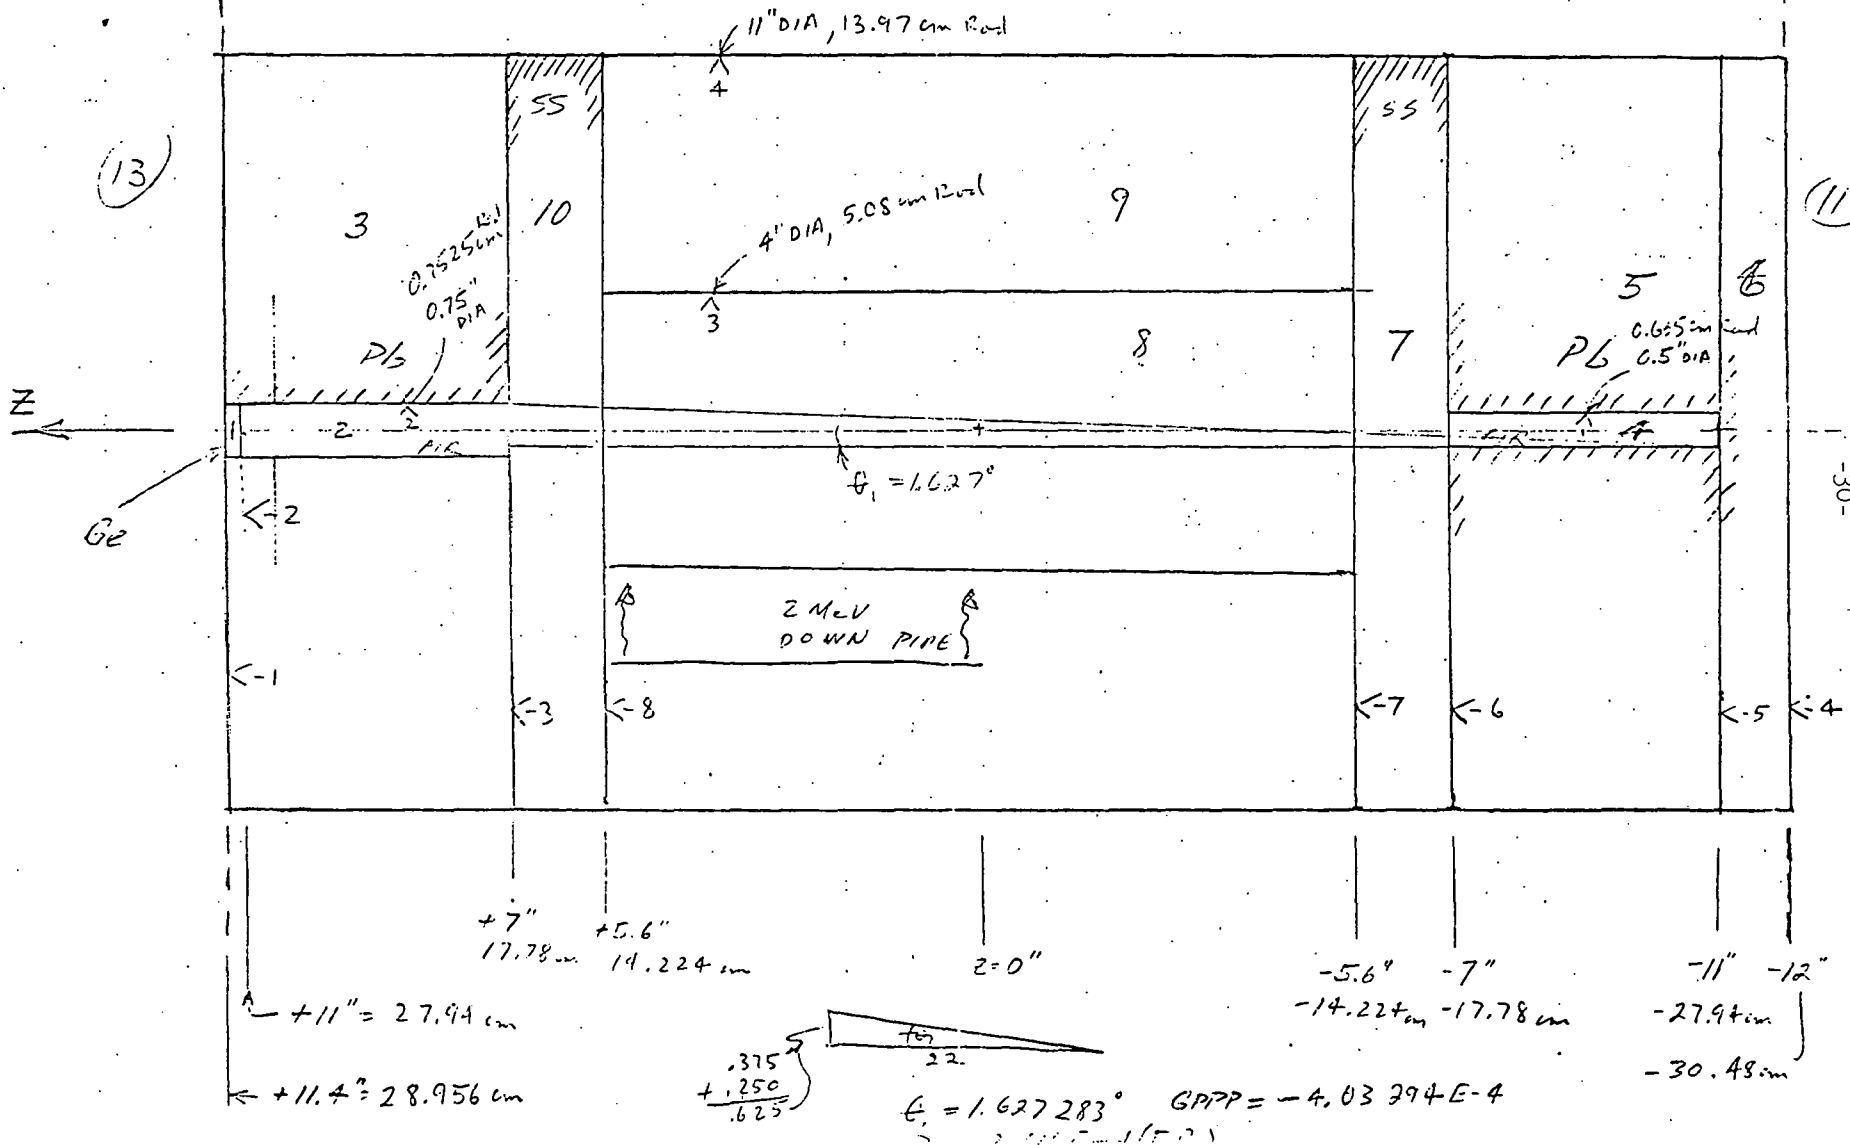 11" DIA, 13.97 cm Rad
4
SS
SS
13
11
3
10
9
4" DIA, 5.08 cm Rad
0.7525 cm Rad
0.75" DIA
3
5
6
Pb
8
7
Pb
0.5" DIA
Z
1
2
2
AIR
4
θ₁ = 1.627°
-30-
Ge
-2
2 MeV
DOWN PIPE
-1
-3
-8
-7
-6
-5
-4
+7"
17.78 cm
+5.6"
14.224 cm
Z=0"
-5.6"
-14.224 cm
-7"
-17.78 cm
-11"
-27.94 cm
-12"
-30.48 cm
+11" = 27.94 cm
+11.4" = 28.956 cm
.375
+ .250
.625
22
= 1.627283°
GPPP = -4.03294E-4